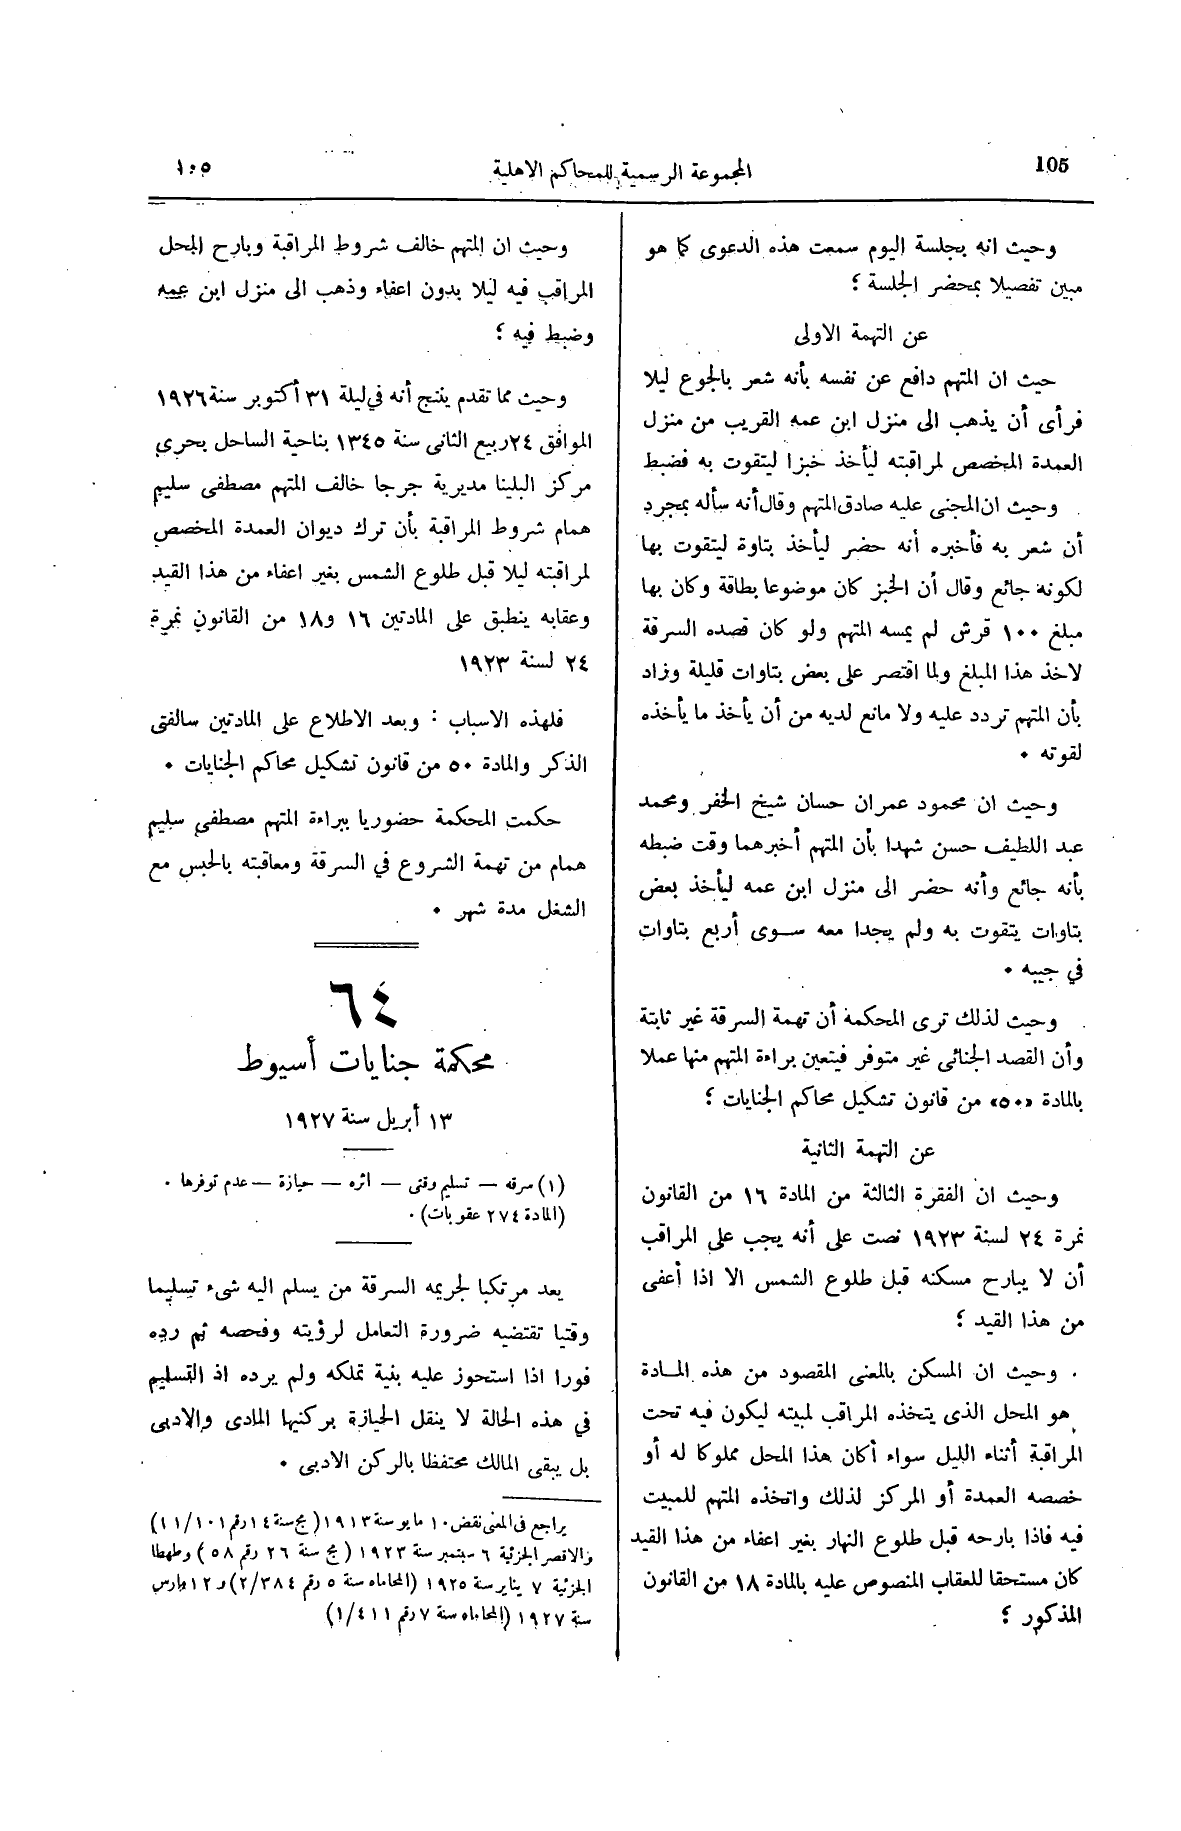 105
المجموعة الرسمية للمحاكم الاهلية
١٠٥
وحيث انه بجلسة اليوم سمعت هذه الدعوى كما هو
مبين تفصيلا بمحضر الجلسة ؛
عن التهمة الاولى
حيث ان المتهم دافع عن نفسه بأنه شعر بالجوع ليلا
فرأى أن يذهب الى منزل ابن عمه القريب من منزل
العمدة المخصص لمراقبته ليأخذ خبزا ليتقوت به فضبط
وحيث ان المجنى عليه صادق المتهم وقال أنه سأله بمجرد
أن شعر به فأخبره أنه حضر ليأخذ بتاوة ليتقوت بها
لكونه جائع وقال أن الخبز كان موضوعا بطاقة وكان بها
مبلغ ١٠٠ قرش لم يمسه المتهم ولو كان قصده السرقة
لاخذ هذا المبلغ ولما اقتصر على بعض بتاوات قليلة وزاد
بأن المتهم تردد عليه ولا مانع لديه من أن يأخذ ما يأخذه
لقوته .
وحيث ان محمود عمران حسان شيخ الخفر ومحمد
عبد اللطيف حسن شهدا بأن المتهم أخبرهما وقت ضبطه
بأنه جائع وأنه حضر الى منزل ابن عمه ليأخذ بعض
بتاوات يتقوت به ولم يجدا معه سوى أربع بتاوات
في جيبه .
وحيث لذلك ترى المحكمة أن تهمة السرقة غير ثابتة
وأن القصد الجنائى غير متوفر فيتعين براءة المتهم منها عملا
بالمادة «٥٠» من قانون تشكيل محاكم الجنايات ؛
عن التهمة الثانية
وحيث ان الفقرة الثالثة من المادة ١٦ من القانون
نمرة ٢٤ لسنة ١٩٢٣ نصت على أنه يجب على المراقب
أن لا يبارح مسكنه قبل طلوع الشمس الا اذا أعفى
من هذا القيد ؛
وحيث ان المسكن بالمعنى المقصود من هذه المادة
هو المحل الذى يتخذه المراقب لمبيته ليكون فيه تحت
المراقبة أثناء الليل سواء أكان هذا المحل مملوكا له أو
خصصه العمدة أو المركز لذلك واتخذه المتهم للمبيت
فيه فاذا بارحه قبل طلوع النهار بغير اعفاء من هذا القيد
كان مستحقا للعقاب المنصوص عليه بالمادة ١٨ من القانون
المذكور ؛
وحيث ان المتهم خالف شروط المراقبة وبارح المحل
المراقب فيه ليلا بدون اعفاء وذهب الى منزل ابن عمه
وضبط فيه ؛
وحيث مما تقدم ينتج أنه في ليلة ٣١ أكتوبر سنة ١٩٢٦
الموافق ٢٤ ربيع الثانى سنة ١٣٤٥ بناحية الساحل بحرى
مركز البلينا مديرية جرجا خالف المتهم مصطفى سليم
همام شروط المراقبة بأن ترك ديوان العمدة المخصص
لمراقبته ليلا قبل طلوع الشمس بغير اعفاء من هذا القيد
وعقابه ينطبق على المادتين ١٦ و١٨ من القانون نمرة
٢٤ لسنة ١٩٢٣
فلهذه الاسباب : وبعد الاطلاع على المادتين سالفتى
الذكر والمادة ٥٠ من قانون تشكيل محاكم الجنايات .
حكمت المحكمة حضوريا ببراءة المتهم مصطفى سليم
همام من تهمة الشروع في السرقة ومعاقبته بالحبس مع
الشغل مدة شهر .
٦٤
محكمة جنايات أسيوط
١٣ أبريل سنة ١٩٢٧
(١) سرقه — تسليم وقتى — اثره — حيازة — عدم توفرها .
(المادة ٢٧٤ عقوبات) .
يعد مرتكبا لجريمه السرقة من يسلم اليه شىء تسليما
وقتيا تقتضيه ضرورة التعامل لرؤيته وفحصه ثم رده
فورا اذا استحوز عليه بنية تملكه ولم يرده اذ التسليم
في هذه الحالة لا ينقل الحيازة بركنيها المادى والادبى
بل يبقى المالك محتفظا بالركن الادبى .
يراجع فى المعنى نقض ١٠ مايو سنة ١٩١٣ (مج سنة ١٤ رقم ١١/١٠١)
والاقصر الجزئية ٦ سبتمبر سنة ١٩٢٣ (مج سنة ٢٦ رقم ٥٨) وطهطا
الجزئية ٧ يناير سنة ١٩٢٥ (المحاماه سنة ٥ رقم ٢/٣٨٤) و ١٢ مارس
سنة ١٩٢٧ (المحاماه سنة ٧ رقم ١/٤١١)